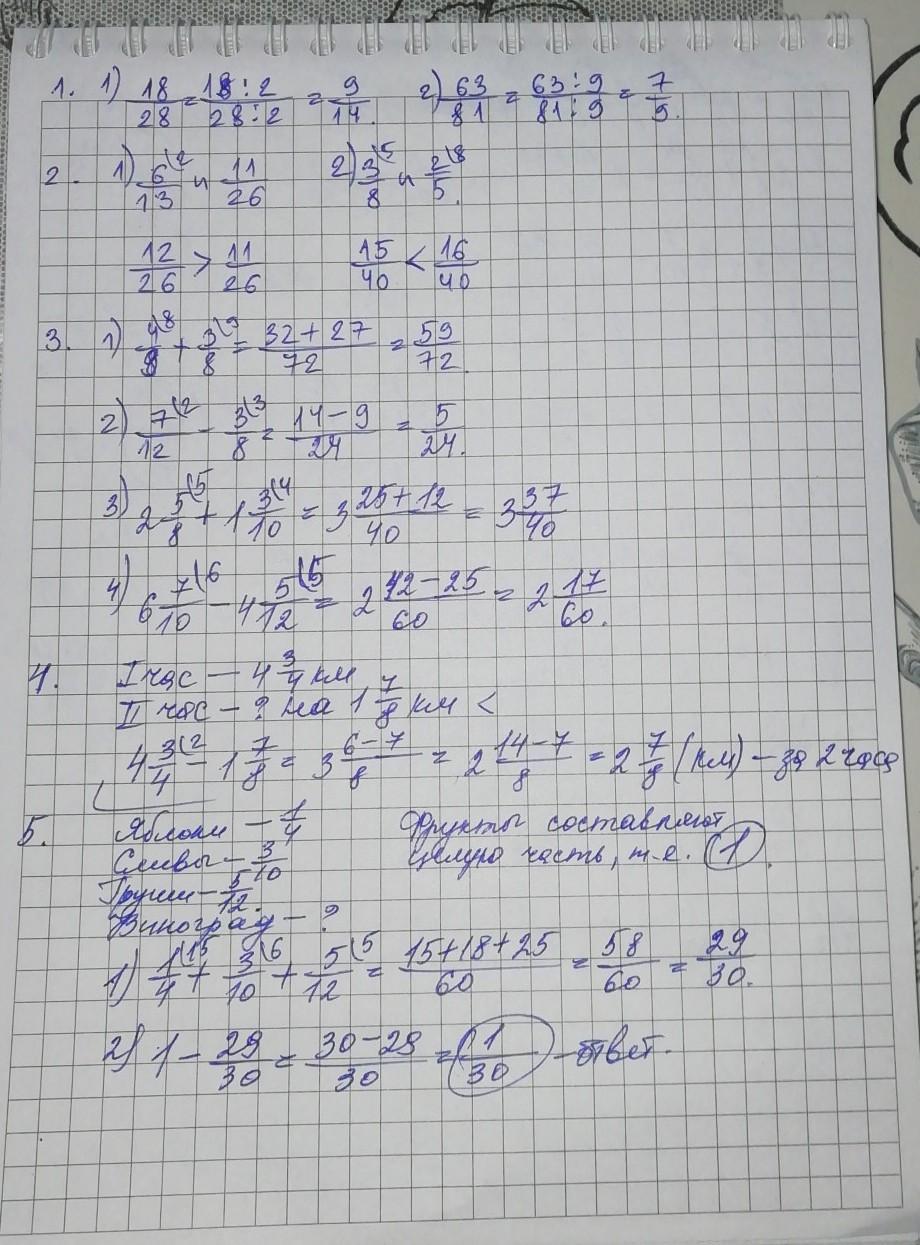 1. 1) 18/28 = 18:2/28:2 = 9/14. 2) 63/81 = 63:9/81:9 = 7/9.
2. 1) 6\2/13 и 11/26 2) 3\5/8 и 2\8/5.
12/26 > 11/26 15/40 < 16/40
3. 1) 4\8/9 + 3\9/8 = 32+27/72 = 59/72.
2) 7\2/12 - 3\3/8 = 14-9/24 = 5/24.
3) 2 5\5/8 + 1 3\4/10 = 3 25+12/40 = 3 37/40
4) 6 7\6/10 - 4 5\5/12 = 2 42-25/60 = 2 17/60.
4. I час - 4 3/4 км
II час - ? на 1 7/8 км <
4 3\2/4 - 1 7/8 = 3 6-7/8 = 2 14-7/8 = 2 7/8 (км) - за 2 часа
5. Яблоки - 1/4 Фрукты составляют
Сливы - 3/10 целую часть, т.е. 1.
Груши - 5/12.
Виноград - ?
1) 1\15/4 + 3\6/10 + 5\5/12 = 15+18+25/60 = 58/60 = 29/30.
2) 1 - 29/30 = 30-29/30 = 1/30 - ответ.